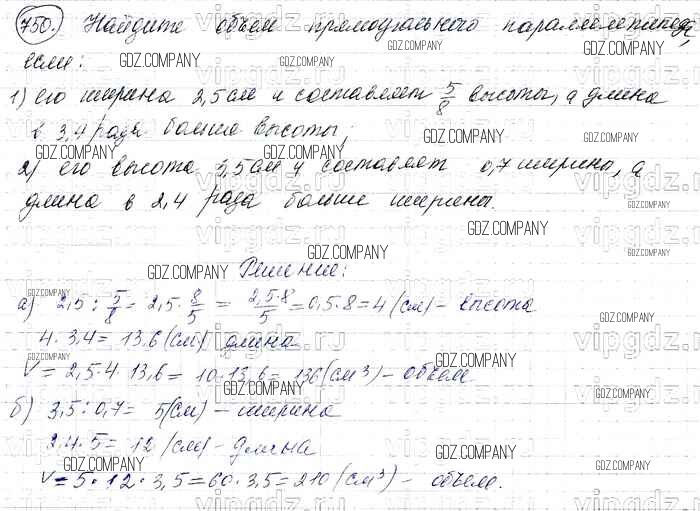 750. Найдите объем прямоугольного параллелепипеда,
если:
1) его ширина 2,5 см и составляет 5/8 высоты, а длина
в 3,4 раза больше высоты;
2) его высота 3,5 см и составляет 0,7 ширины, а
длина в 2,4 раза больше ширины.
Решение:
а) 2,5 : 5/8 = 2,5 · 8/5 = 2,5·8/5 = 0,5·8 = 4 (см) – высота
4 · 3,4 = 13,6 (см) длина
V = 2,5 · 4 · 13,6 = 10 · 13,6 = 136 (см³) – объем
б) 3,5 : 0,7 = 5 (см) – ширина
2,4 · 5 = 12 (см) – длина
V = 5 · 12 · 3,5 = 60 · 3,5 = 210 (см³) – объем.
GDZ.COMPANY
vipgdz.ru